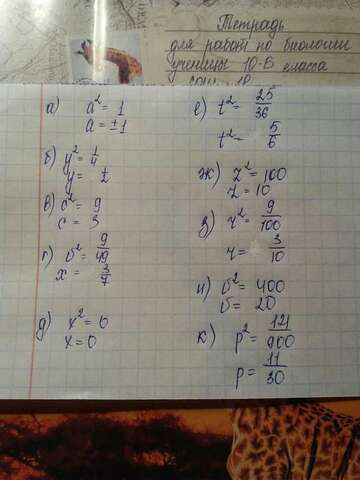 Тетрадь
для работ по биологии
ученицы 10-В класса
а) a² = 1
a = ±1
б) y² = 1/4
y = 1/2
в) c² = 9
c = 3
г) b² = 9/49
x = 3/7
д) x² = 0
x = 0
е) t² = 25/36
t² = 5/6
ж) z² = 100
z = 10
з) r² = 9/100
r = 3/10
и) b² = 400
b = 20
к) p² = 121/900
p = 11/30